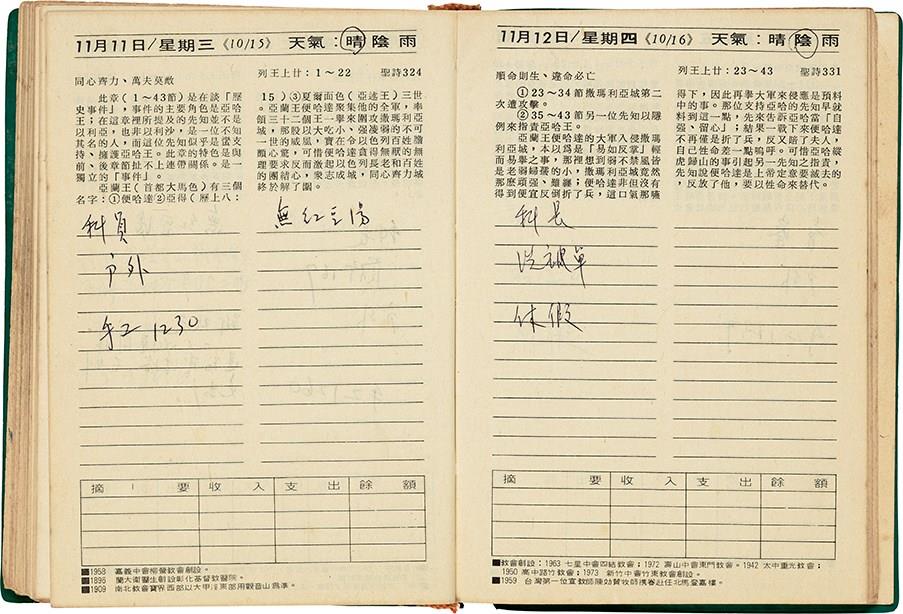 11月11日/星期三《10/15》 天氣:晴陰雨
列王上廿:1~22 聖詩324
同心齊力、萬夫莫敵
此章(1~43節)是在談「歷
史事件」,事件的主要角色是亞哈
王;在這章裡所提及的先知並不是
以利亞,也非以利沙,是一位不知
其名的人,而這位先知似乎是當支
持、擁護亞哈王。此章的特色是與
前、後章節扯不上連帶關係。是一
獨立的「事件」。
亞蘭王(首都大馬色)有三個
名字:①便哈達②亞得(歷上八:
15)③夏爾面色(亞述王)三世
。亞蘭王便哈達聚集他的全軍,率
領三十二個王一
城,
一世的威風,
顧心驚,可惜便哈達
理要求反而激起
的團結心,衆志成城,同心齊力城
終於解了圍。
科員
戶外
手工 1230
無紅豆湯
摘 要 收 入 支 出 餘 額
■1958 嘉義中會柳營教會創設。
■1896 蘭大衛醫生創設彰化基督教醫院。
■1909 南北教會實界西部以大甲溪東部用觀音山為準。
11月12日/星期四《10/16》 天氣:晴陰雨
列王上廿:23~43 聖詩331
順命則生、違命必亡
①23~34節撒瑪利亞城第二
次遭攻擊。
②35~43節另一位先知以隱
例來指責亞哈王。
亞蘭王便哈達的大軍入侵撒瑪
利亞城,本以爲是「易如反掌」輕
而易擧之事,那裡想到弱不禁風皆
是老弱婦孺的小,撒瑪利亞城竟然
那麽頑强、難纏;便哈達非但沒有
得到便宜反倒折了兵,這口氣那嚥
得下,因此再擧大軍來侵的應是預料
中的事。那位支持亞哈的先知早就
料到這一點,先來告訴亞哈當「自
强、留心」;結果一戰下來便哈達
不再僅是折了兵,反又賠了夫人,
自己性命差一點嗚呼。可惜亞哈縱
虎歸山的事引起另一先知之指責,
先知說便哈達是上帝定意要滅的,
反放了他,要以性命來替代。
科長
洗被單
休假
摘 要 收 入 支 出 餘 額
■教會創設:1963 七星中會四結教會;1972 壽山中會東門教會。1942 太中重光教會;
1950 高中路竹教會;1973 新竹中會竹東教會創設。
■1959 台灣第一位宣教師陳効賢牧師携眷赴任北馬登嘉樓。